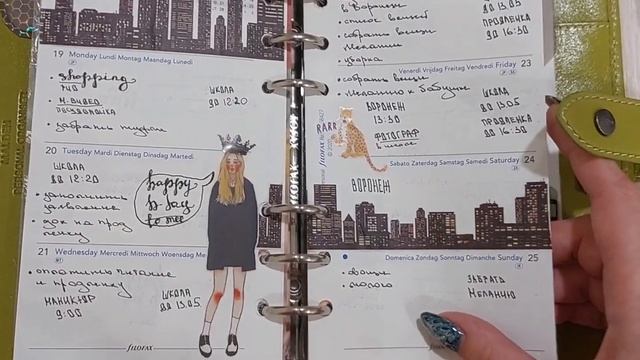 19 Monday Lundi Montag Maandag Lunedi
• shopping
ТЧО
• М.ВИДЕО
ПОСУДОМОЙКА
• забрать
ШКОЛА
ДО 12:20
20 Tuesday Mardi Dienstag Dinsdag Martedi
ШКОЛА
ДО 12:20
• заполнить
заявление
• док на прод
ленку
happy
b-day
to me
21 Wednesday Mercredi Mittwoch Woensdag Me
• оплатить питание
и продленку
МАНИКЮР
9:00
ШКОЛА
ДО 13.05
FILOFAX
в Воронеж
• список вещей
• собрать вещи
Мелании
• уборка
ДО 13.05
ПРОДЛЕНКА
ДО 16:30
Venerdì Vrijdag Freitag Vendredi Friday 23
• собрать вещи
• Меланию к бабушке
ВОРОНЕЖ
13:30
ФОТОГРАФ
в школе
ШКОЛА
ДО 13.05
ПРОДЛЕНКА
ДО 16:30
RARR
filofax
Sabato Zaterdag Samstag Samedi Saturday 24
ВОРОНЕЖ
Domenica Zondag Sonntag Dimanche Sunday 25
• овощи
• молоко
ЗАБРАТЬ
МЕЛАНИЮ
FILOFAX